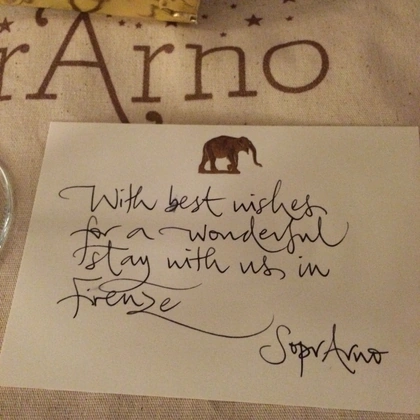 rArno
With best wishes
for a wonderful
stay with us, in
firenze
SoprArno